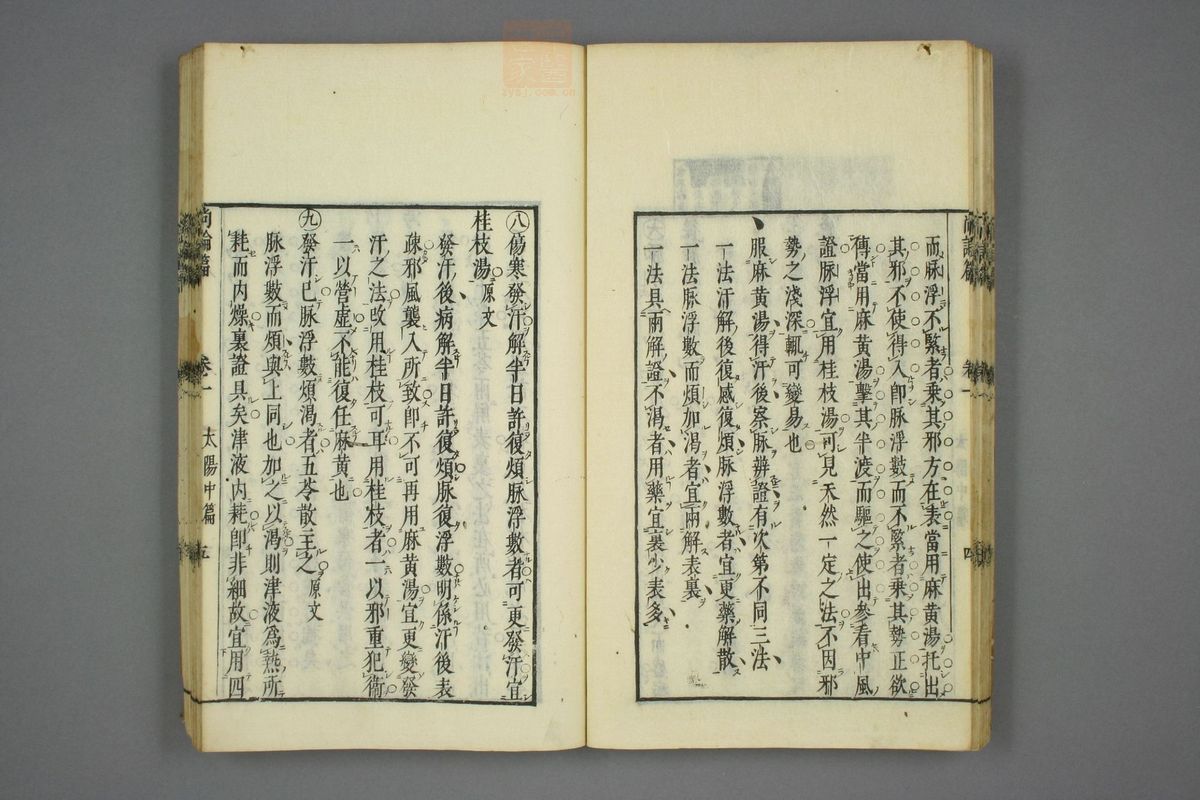 而脈浮不緊者乘其邪方在表當用麻黃湯托出
其邪不使得入卽脈浮數而不緊者乘其勢正欲
傳當用麻黃湯擊其半渡而驅之使出參看中風
證脈浮宜用桂枝湯可見天然一定之法不因邪
勢之淺深輒可變易也
服麻黃湯得汗後察脈辨證有次第不同三法
一法汗解後復感復煩脈浮數者宜更藥解散
一法脈浮數而煩加渴者宜兩解表裏
一法具兩解證不渴者用藥宜裏少表多
尚論篇 卷一 四
八傷寒發汗解半日許復煩脈浮數者可更發汗宜
桂枝湯原文
發汗後病解半日許復煩脈復浮數明係汗後表
疎邪風襲入所致卽不可再用麻黃湯宜更變發
汗之法改用桂枝可耳用桂枝者一以邪重犯衛
一以營虛不能復任麻黃也
九發汗已脈浮數煩渴者五苓散主之原文
脈浮數而煩與上同也加之以渴則津液爲熱所
耗而內燥裏證具矣津液內耗卽非細故宜用四
尚論篇 卷一 太陽中篇 五
zysj.com.cn